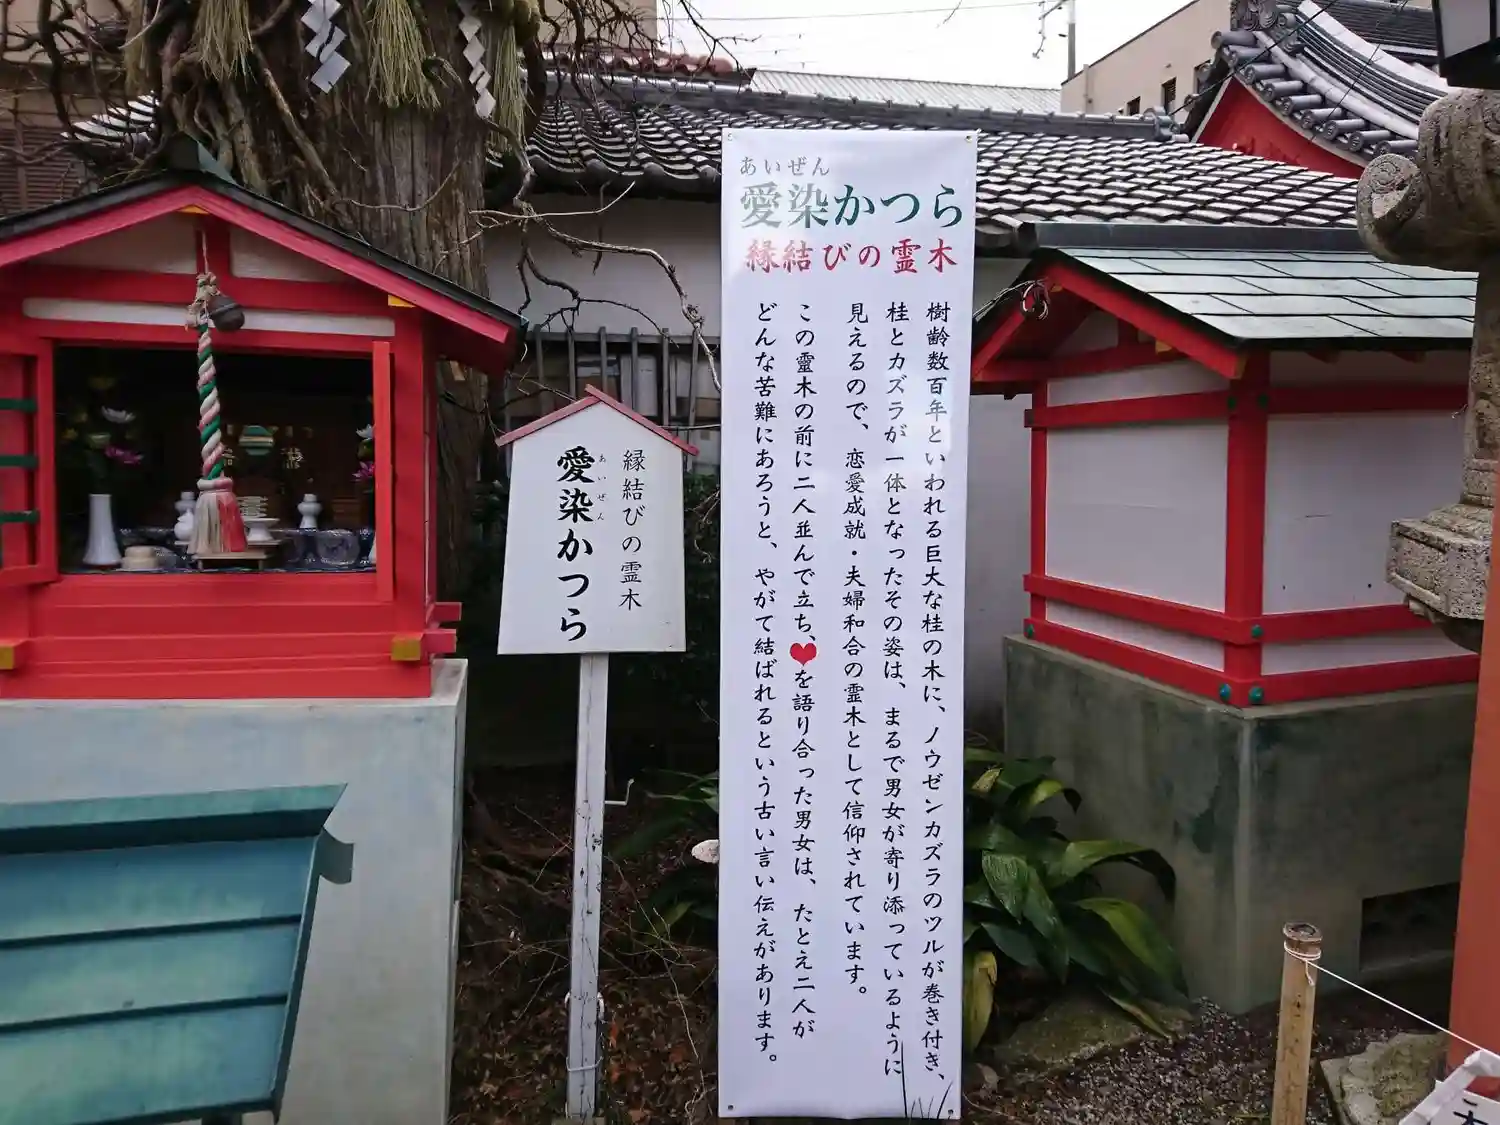 あいぜん
愛染かつら
縁結びの霊木
樹齢数百年といわれる巨大な桂の木に、ノウゼンカズラのツルが巻き付き、
桂とカズラが一体となったその姿は、まるで男女が寄り添っているように
見えるので、恋愛成就・夫婦和合の霊木として信仰されています。
この靈木の前に二人並んで立ち、❤を語り合った男女は、たとえ二人が
どんな苦難にあろうと、やがて結ばれるという古い言い伝えがあります。
縁結びの霊木
あいぜん
愛染かつら